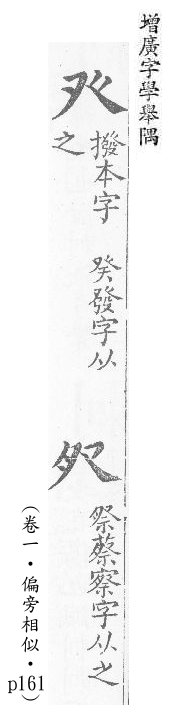 增廣字學舉隅
癶
撥本字 癸發字从
之
祭蔡察字从之
（卷一・偏旁相似・p161）